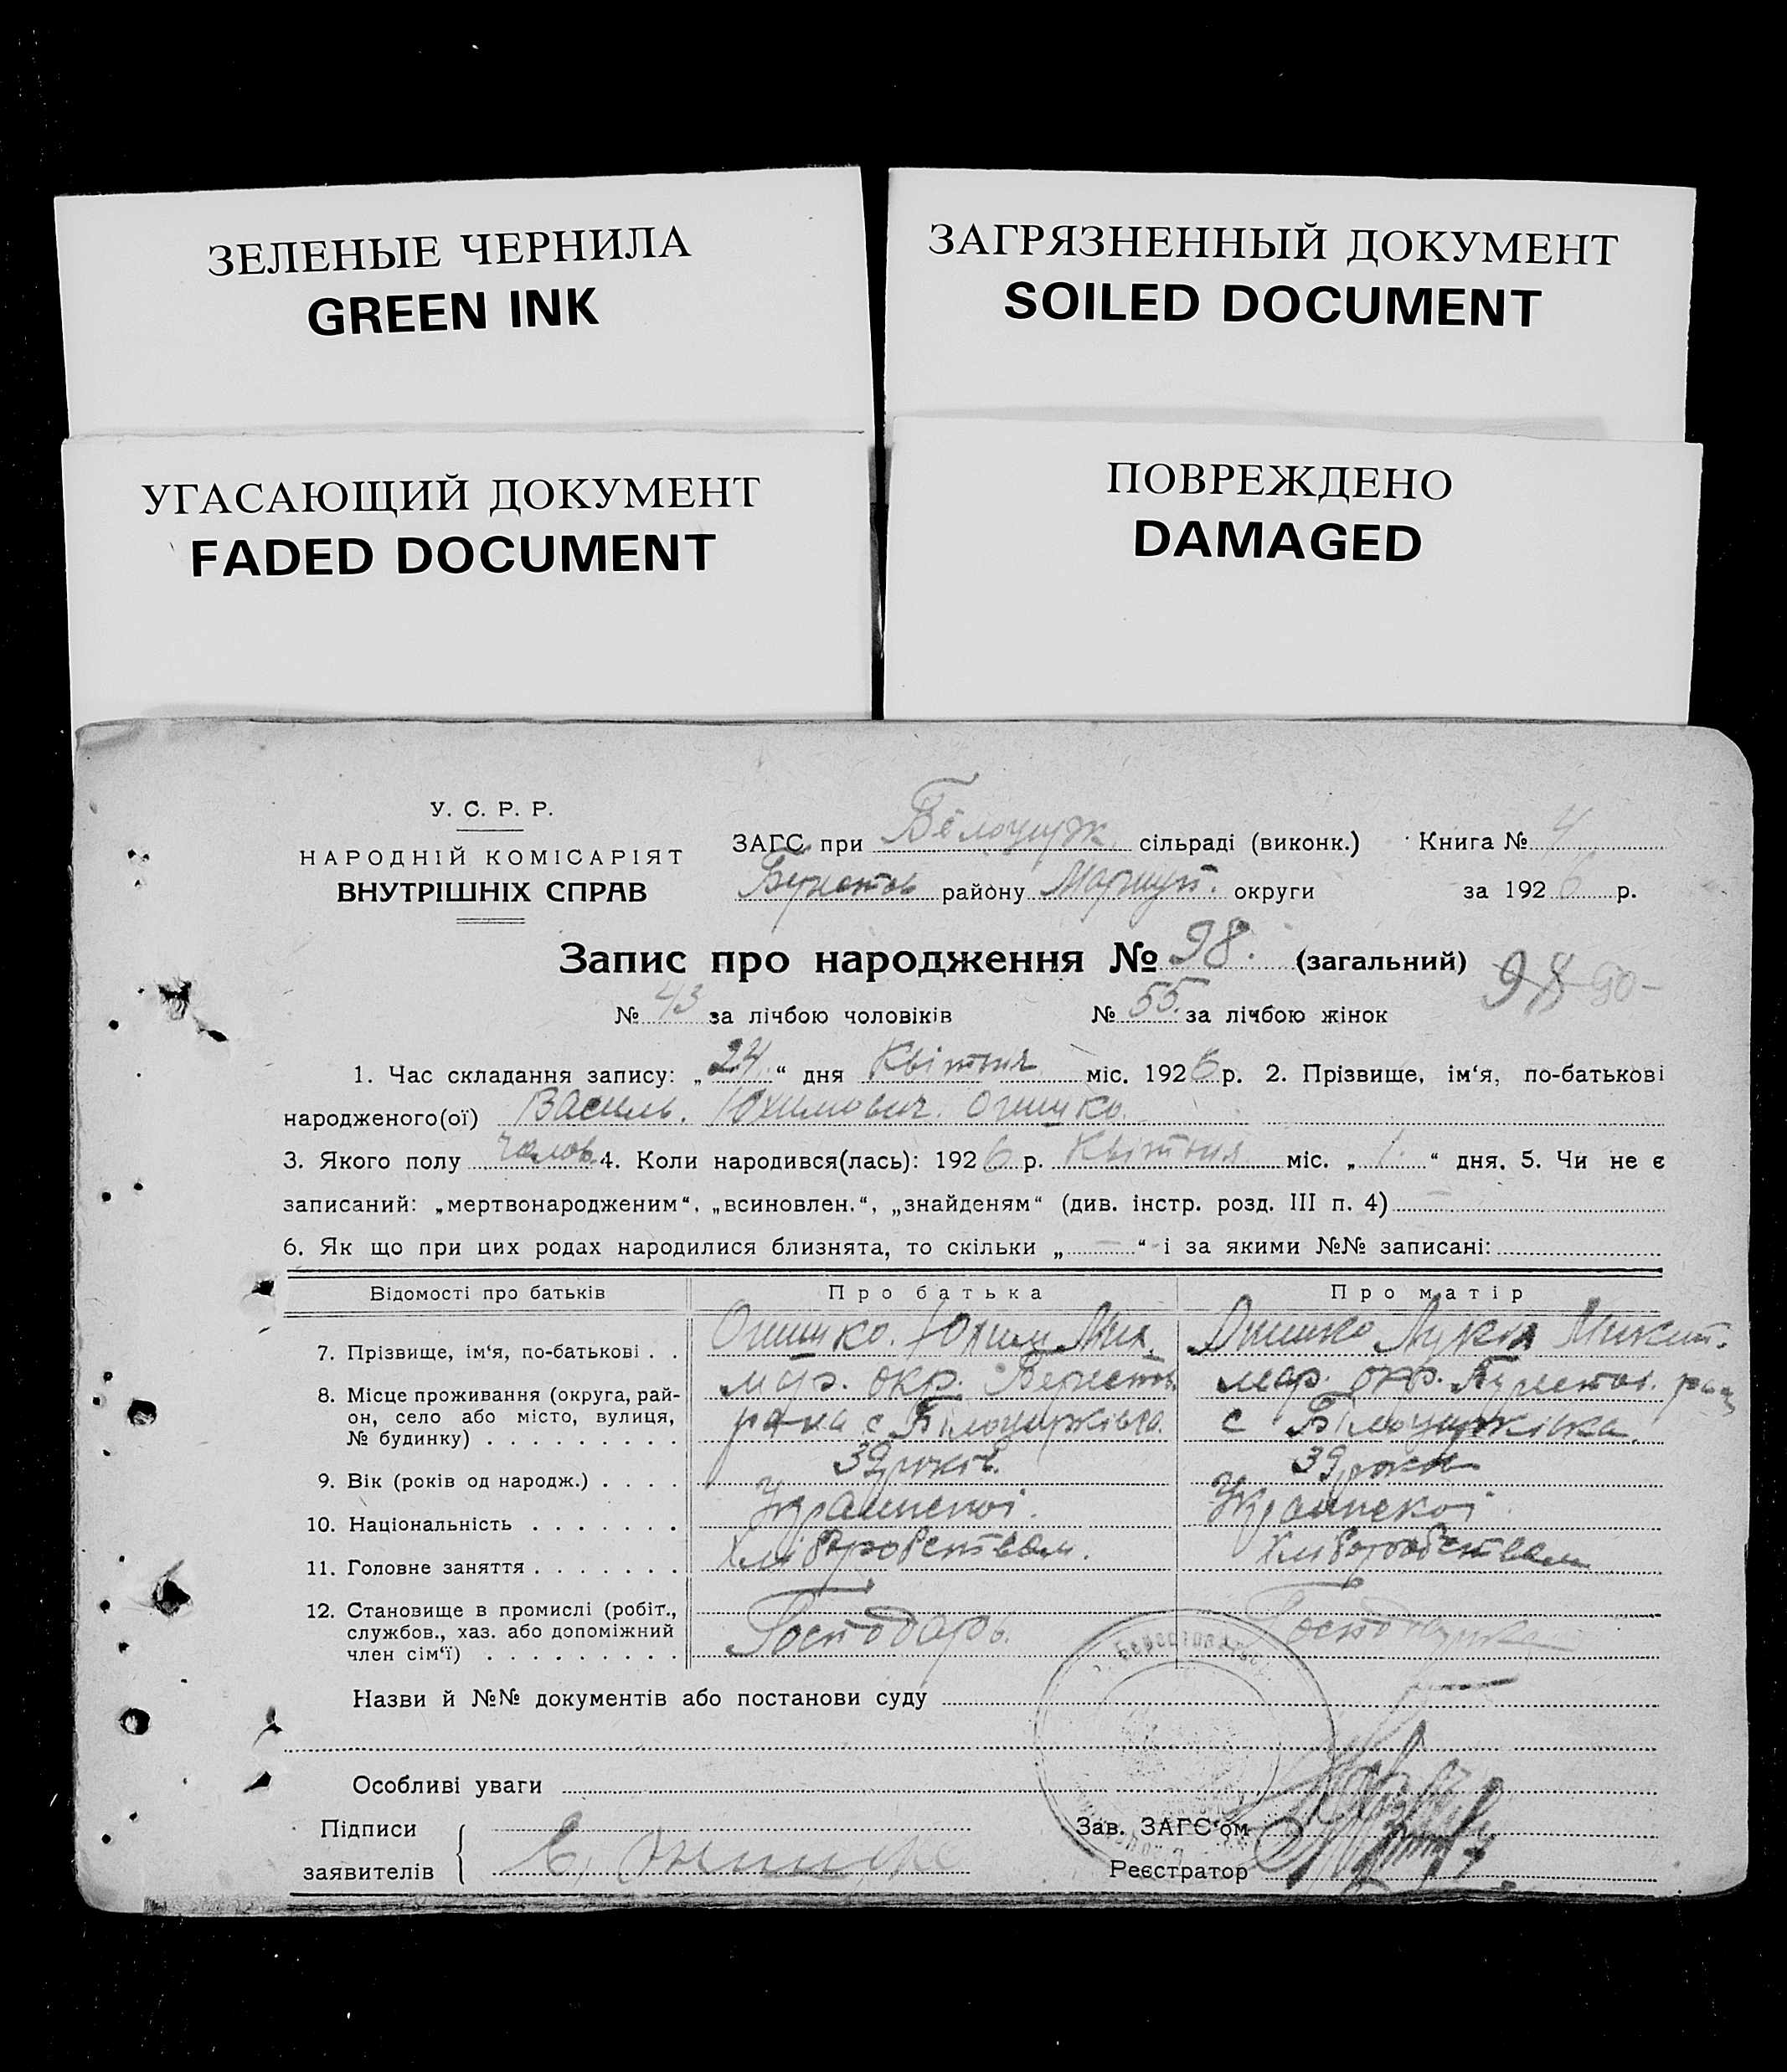 ЗЕЛЕНЫЕ ЧЕРНИЛА
GREEN INK
ЗАГРЯЗНЕННЫЙ ДОКУМЕНТ
SOILED DOCUMENT
УГАСАЮЩИЙ ДОКУМЕНТ
FADED DOCUMENT
ПОВРЕЖДЕНО
DAMAGED
У. С. Р. Р.
НАРОДНІЙ КОМІСАРІЯТ
ВНУТРІШНІХ СПРАВ
ЗАГС при сільраді (виконк.) Книга № 4
району Маріуп. округи за 1926 р.
Запис про народження № 98. (загальний) 98
№ 43 за лічбою чоловіків № 55. за лічбою жінок
1. Час складання запису: „24“ дня Квітня міс. 1926 р. 2. Прізвище, ім‘я, по-батькові
народженого(ої) Василь. Юхимович. Онишко.
3. Якого полу чолов. 4. Коли народився(лась): 1926 р. Квітня міс. „1.“ дня. 5. Чи не є
записаний: „мертвонародженим“, „всиновлен.“, „знайденям“ (див. інстр. розд. III п. 4) —
6. Як що при цих родах народилися близнята, то скільки „—“ і за якими №№ записані:
Відомості про батьків Про батька Про матір
7. Прізвище, ім‘я, по-батькові . . Онишко. Юхим Мих. Онишко Микит.
8. Місце проживання (округа, рай- мар. окр. мар. окр.
он, село або місто, вулиця, с с
№ будинку)
9. Вік (років од народж.) 39 років. 39 роки
10. Національність Украінскоі. Украінскоі
11. Головне заняття Хліборобством. Хліборобством
12. Становище в промислі (робіт., Господарь.
службов., хаз. або допоміжний
член сім‘ї)
Назви й №№ документів або постанови суду
Особливі уваги
Підписи
заявителів
Зав. ЗАГС‘ом
Реєстратор